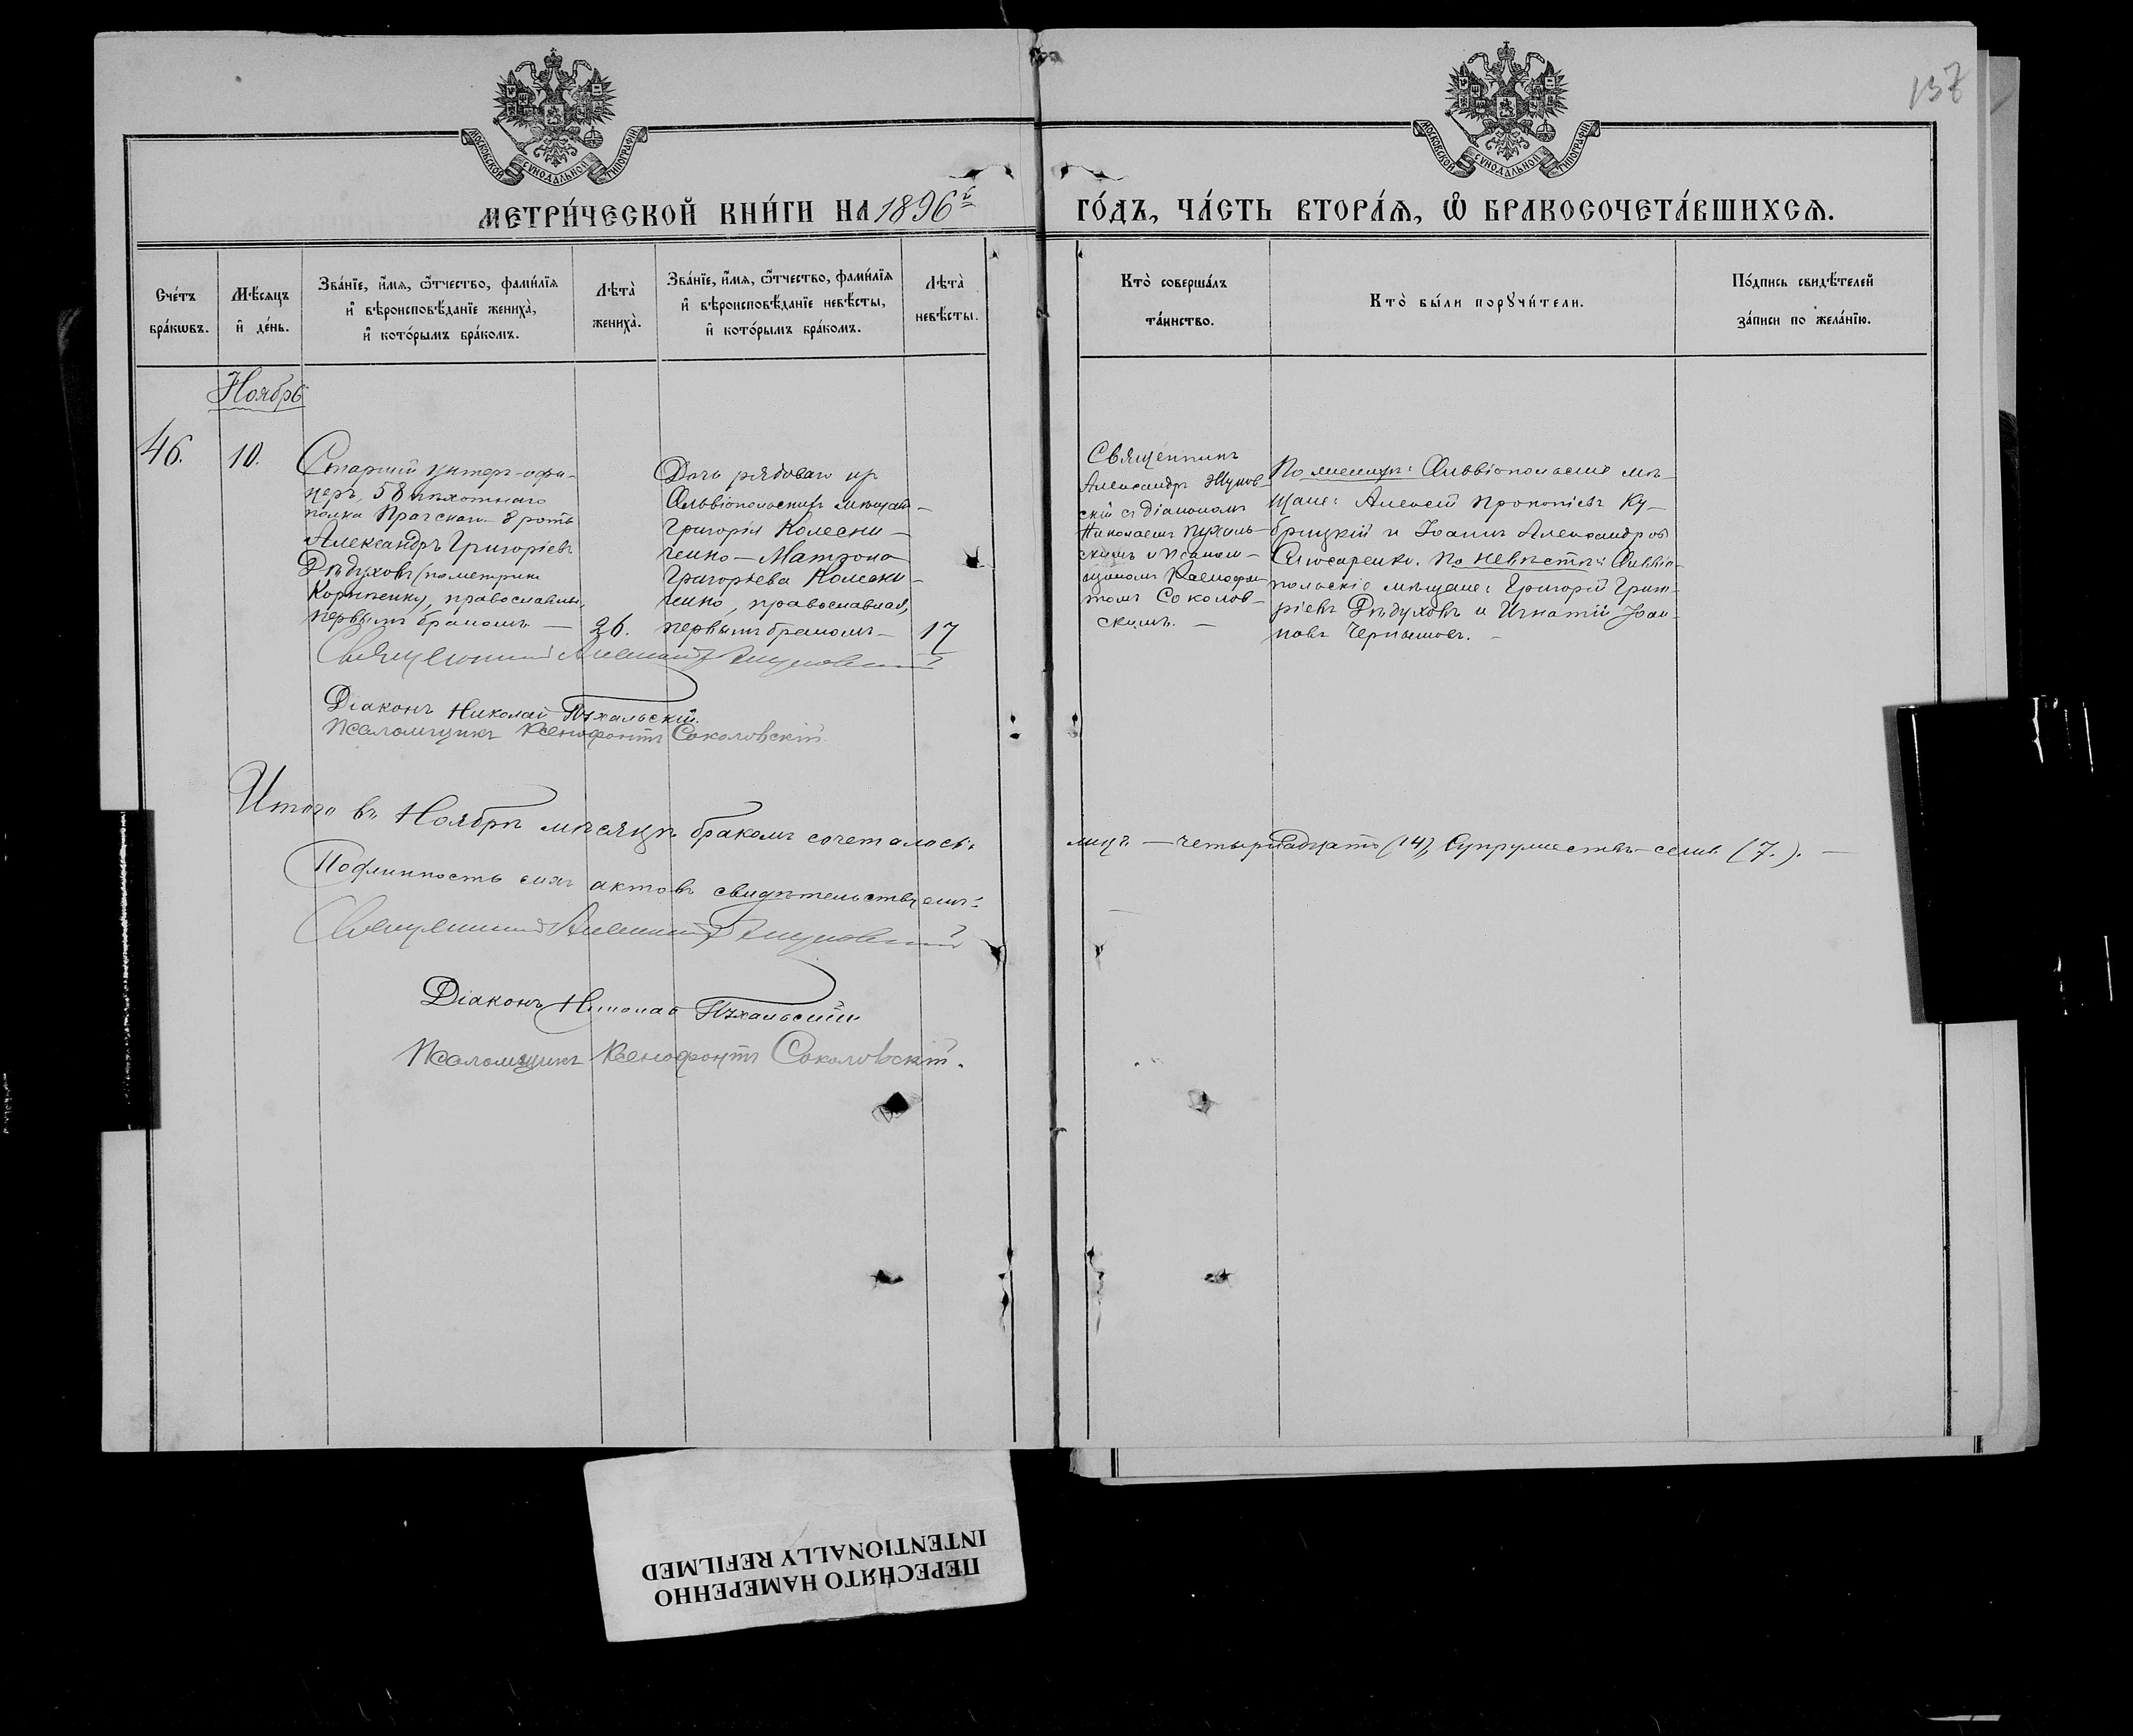 137
МОСКОВСКОЙ СѴНОДАЛЬНОЙ ТИПОГРАФІИ
МОСКОВСКОЙ СѴНОДАЛЬНОЙ ТИПОГРАФІИ
МЕТРИ́ЧЕСКОЙ КНИ́ГИ НА 1896й
ГО́ДЪ, ЧА́СТЬ ВТОРА́Ѧ, Ѽ БРАКОСОЧЕТА́ВШИХСѦ.
Сче́тъ
бра́кѡвъ.
Мѣ́сѧцъ
и҆ де́нь.
Зва́нїе, и҆́мѧ, ѻ҆́тчество, фамн́лїѧ
и҆ вѣроисповѣ́данїе жениха̀,
и҆ кото́рымъ бра́комъ.
Лѣта̀
жениха̀.
Зва́нїе, и҆́мѧ, ѻ҆́тчество, фами́лїѧ
и҆ вѣроисповѣ́данїе невѣ́сты,
и҆ кото́рымъ бра́комъ.
Лѣта̀
невѣ́сты.
Кто̀ соверша́лъ
та́инство.
Кто̀ бы́ли порꙋчи́тели.
По́дпись свидѣ́телей
за́писи по жела́нїю.
Ноябрь
46.
10.
Старшій унтеръ-офи-
церъ 58 пѣхотнаго
полка Прагскаго 8 роты
Александръ Григоріевъ
Дѣдуховъ (по метрикѣ
православный,
первымъ бракомъ —
26.
Дочь рядоваго изъ
Ольвіопольскихъ мѣщан-
Григорія Колесни-
ченко — Матрона
Григорьева Колесни-
ченко, православная,
первымъ бракомъ —
17
Священникъ
Александръ Жуков-
скій съ діакономъ
Николаемъ Пухаль-
скимъ и псалом-
щикомъ Ксенофон-
томъ Соколов-
скимъ. —
По женихѣ: Ольвіопольскіе мѣ-
щане: Алексѣй Прокопіевъ Ку-
брицкій и Іоаннъ Александровъ
Слюсаренко. По невѣстѣ: Ольвіо-
польскіе мѣщане: Григорій Григо-
ріевъ Дѣдуховъ и Игнатій Іоан-
новъ Чернышовъ. —
Священникъ Александръ Жуковскій
Діаконъ Николай Пухальскій.
Псаломщикъ Ксенофонтъ Соколовскій
Итого въ Ноябрѣ мѣсяцѣ бракомъ сочеталось:
лицъ — четырнадцать (14), Супружествъ — семь (7.). —
Подлинность сихъ актовъ свидѣтельствуемъ:
Священникъ Александръ Жуковскій
Діаконъ Николай Пухальскій
Псаломщикъ Ксенофонтъ Соколовскій.
ПЕРЕСНЯТО НАМЕРЕННО
INTENTIONALLY REFILMED